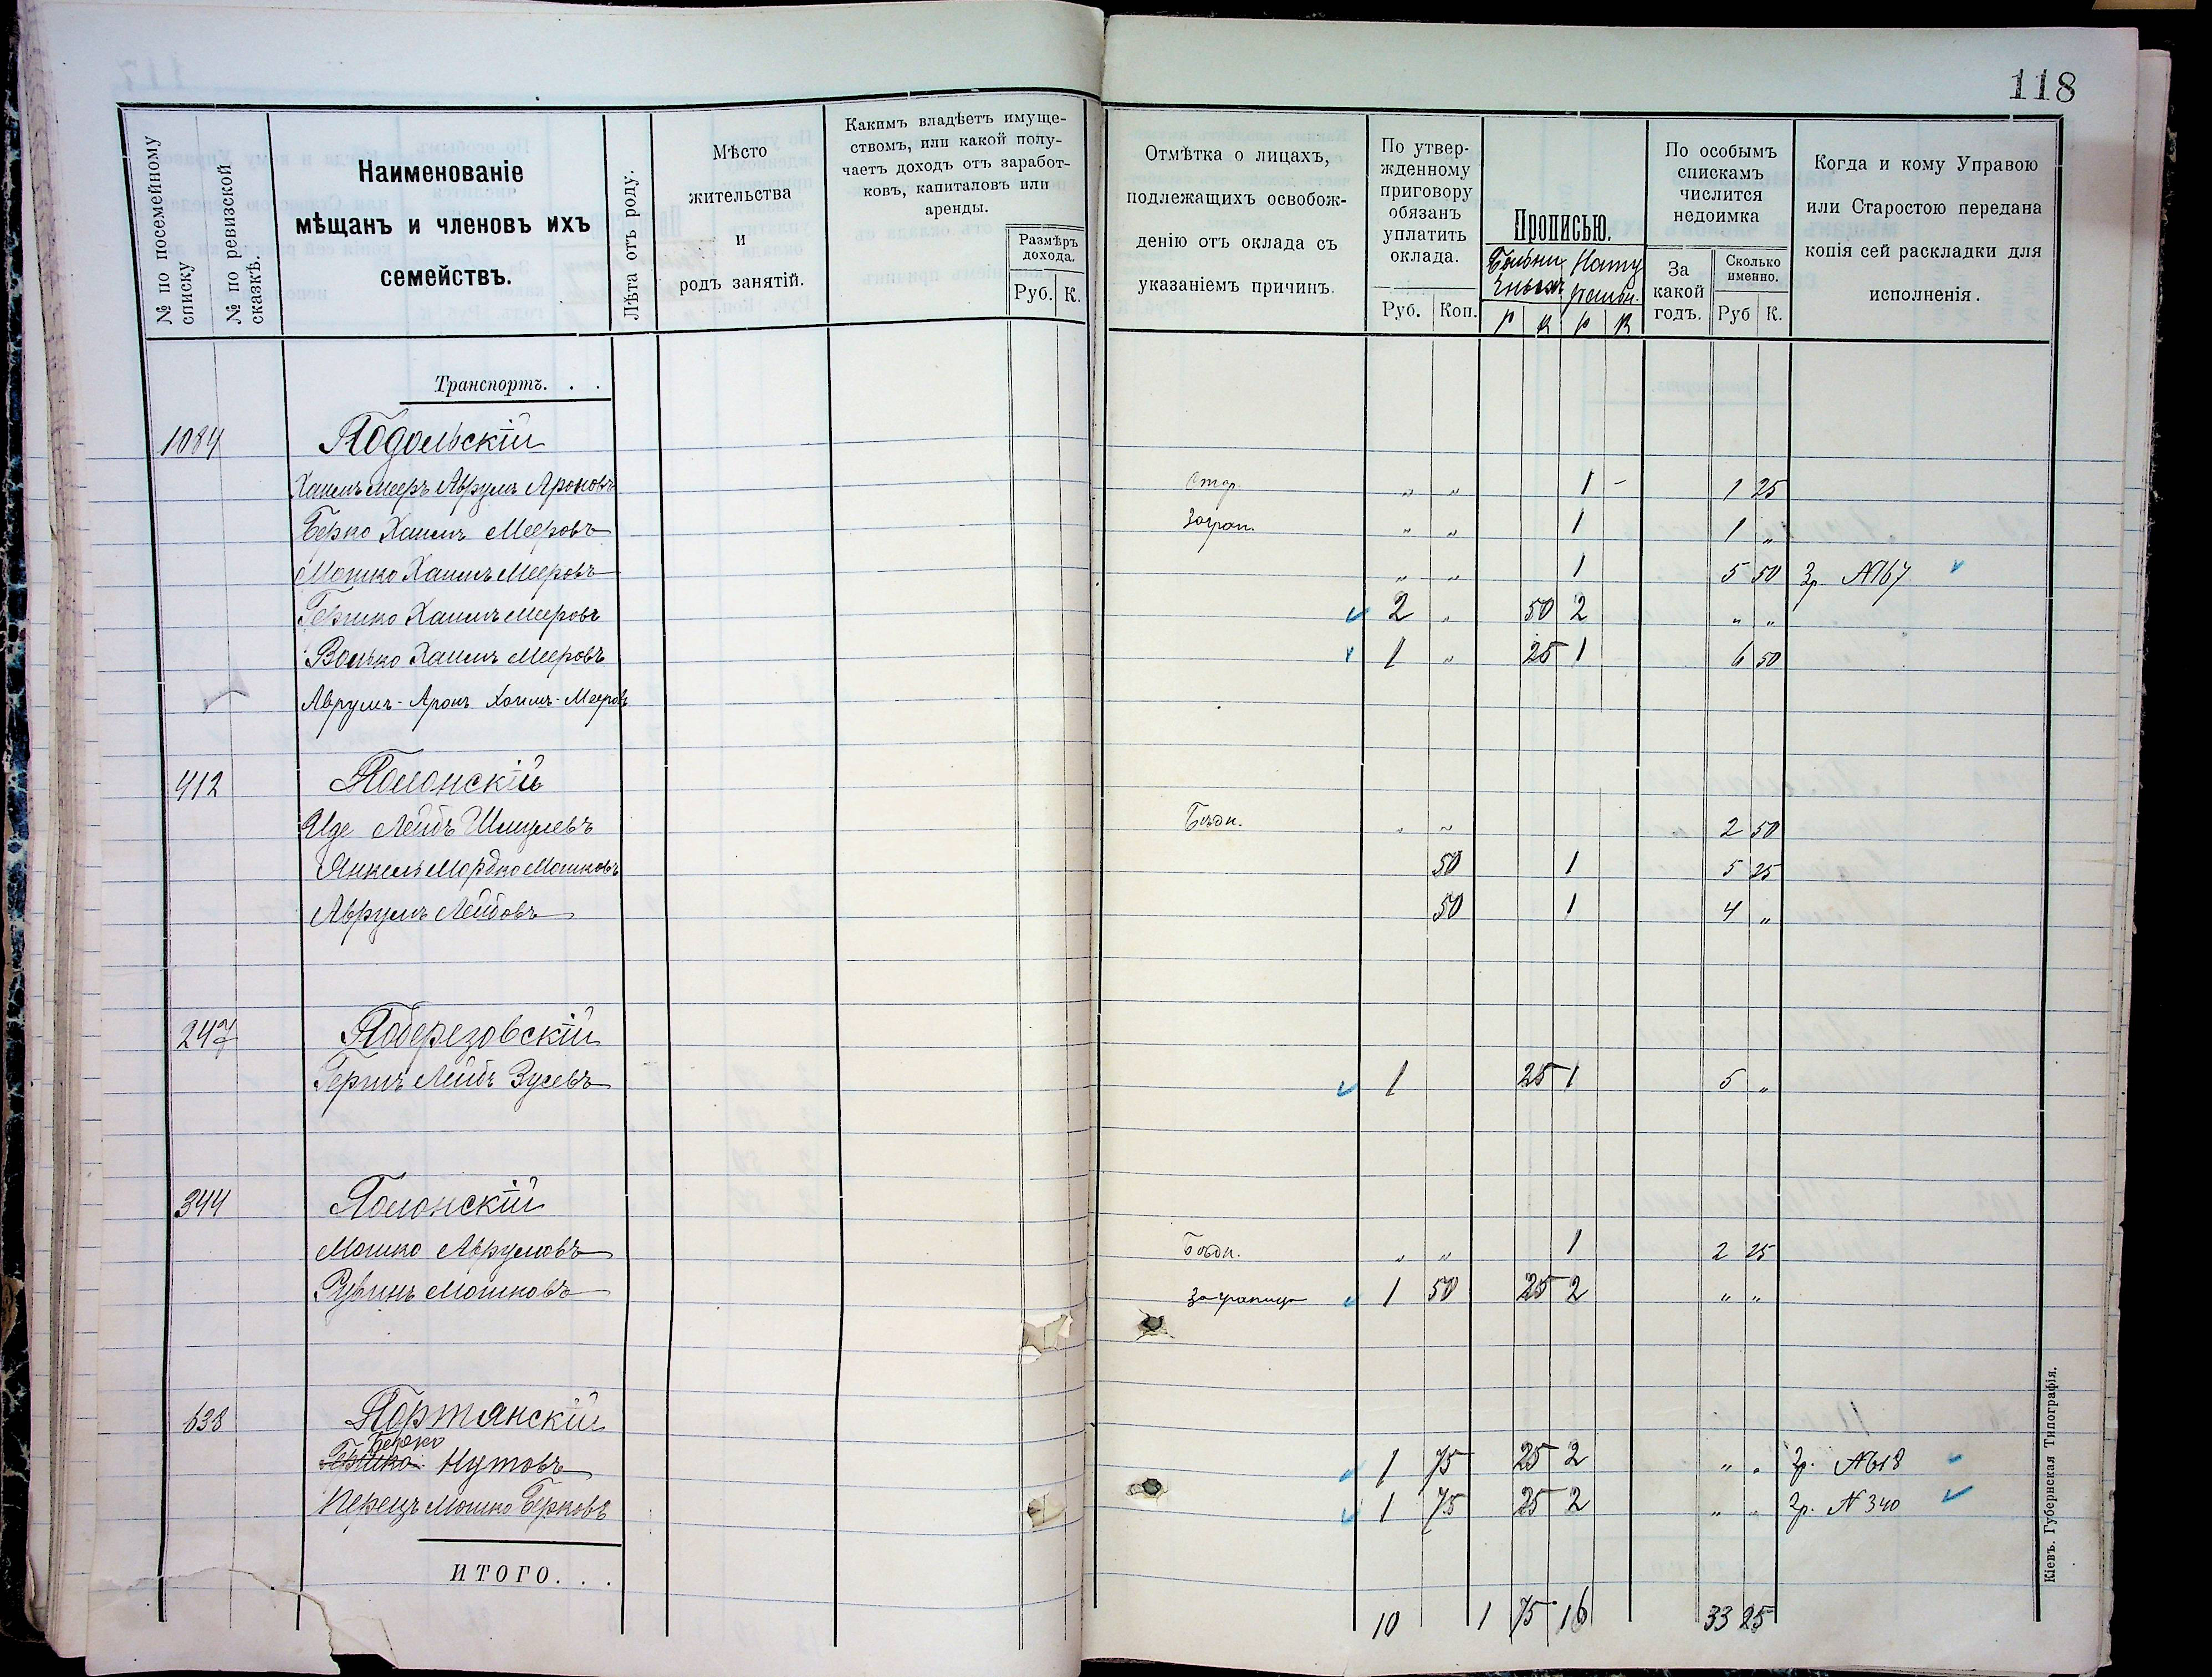 118
№ по посемейному списку
№ по ревизской сказкѣ.
Наименованіе
мѣщанъ и членовъ ихъ
семействъ.
Лѣта отъ роду.
Мѣсто
жительства
и
родъ занятій.
Какимъ владѣетъ имуще-
ствомъ, или какой полу-
чаетъ доходъ отъ заработ-
ковъ, капиталовъ или
аренды.
Размѣръ
дохода.
Руб. К.
Отмѣтка о лицахъ,
подлежащихъ освобож-
денію отъ оклада съ
указаніемъ причинъ.
По утвер-
жденному
приговору
обязанъ
уплатить
оклада.
Руб. Коп.
Прописью.
р к р к
По особымъ
спискамъ
числится
недоимка
За
какой
годъ.
Сколько
именно.
Руб К.
Когда и кому Управою
или Старостою передана
копія сей раскладки для
исполненія.
Транспортъ. . .
1084 Подольскій
Хаимъ Мееръ Аврумъ Ароновъ Стар. „ „ 1 - 1 25
Берко Хаимъ Мееровъ Загран. „ „ 1 1 „
Мошко Хаимъ Мееровъ „ „ 1 5 50 Зр. №167
Гершко Хаимъ Мееровъ 2 „ 50 2 „ „
Волько Хаимъ Мееровъ 1 „ 25 1 6 50
Аврумъ-Аронъ Хаимъ-Мееровъ
412 Полонскій
Иде Лейбъ Шмулевъ Бѣдн. „ „ 2 50
Янкель Мордко Мошковъ 50 1 5 25
Аврумъ Лейбовъ 50 1 4 „
247 Поберезовскій
Гершъ Лейбъ Зусевъ 1 25 1 5 „
344 Полонскій
Мошко Аврумовъ Бѣдн. „ „ 1 2 25
Рувинъ Мошковъ заграницу 1 50 25 2 „ „
638 Портянскій
Берко
Гершко Нутовъ 1 75 25 2 „ „ Зр. №618
Перецъ Мошко Берковъ 1 75 25 2 „ „ Зр. №340
ИТОГО. . .
10 1 75 16 33 25
Кіевъ. Губернская Типографія.